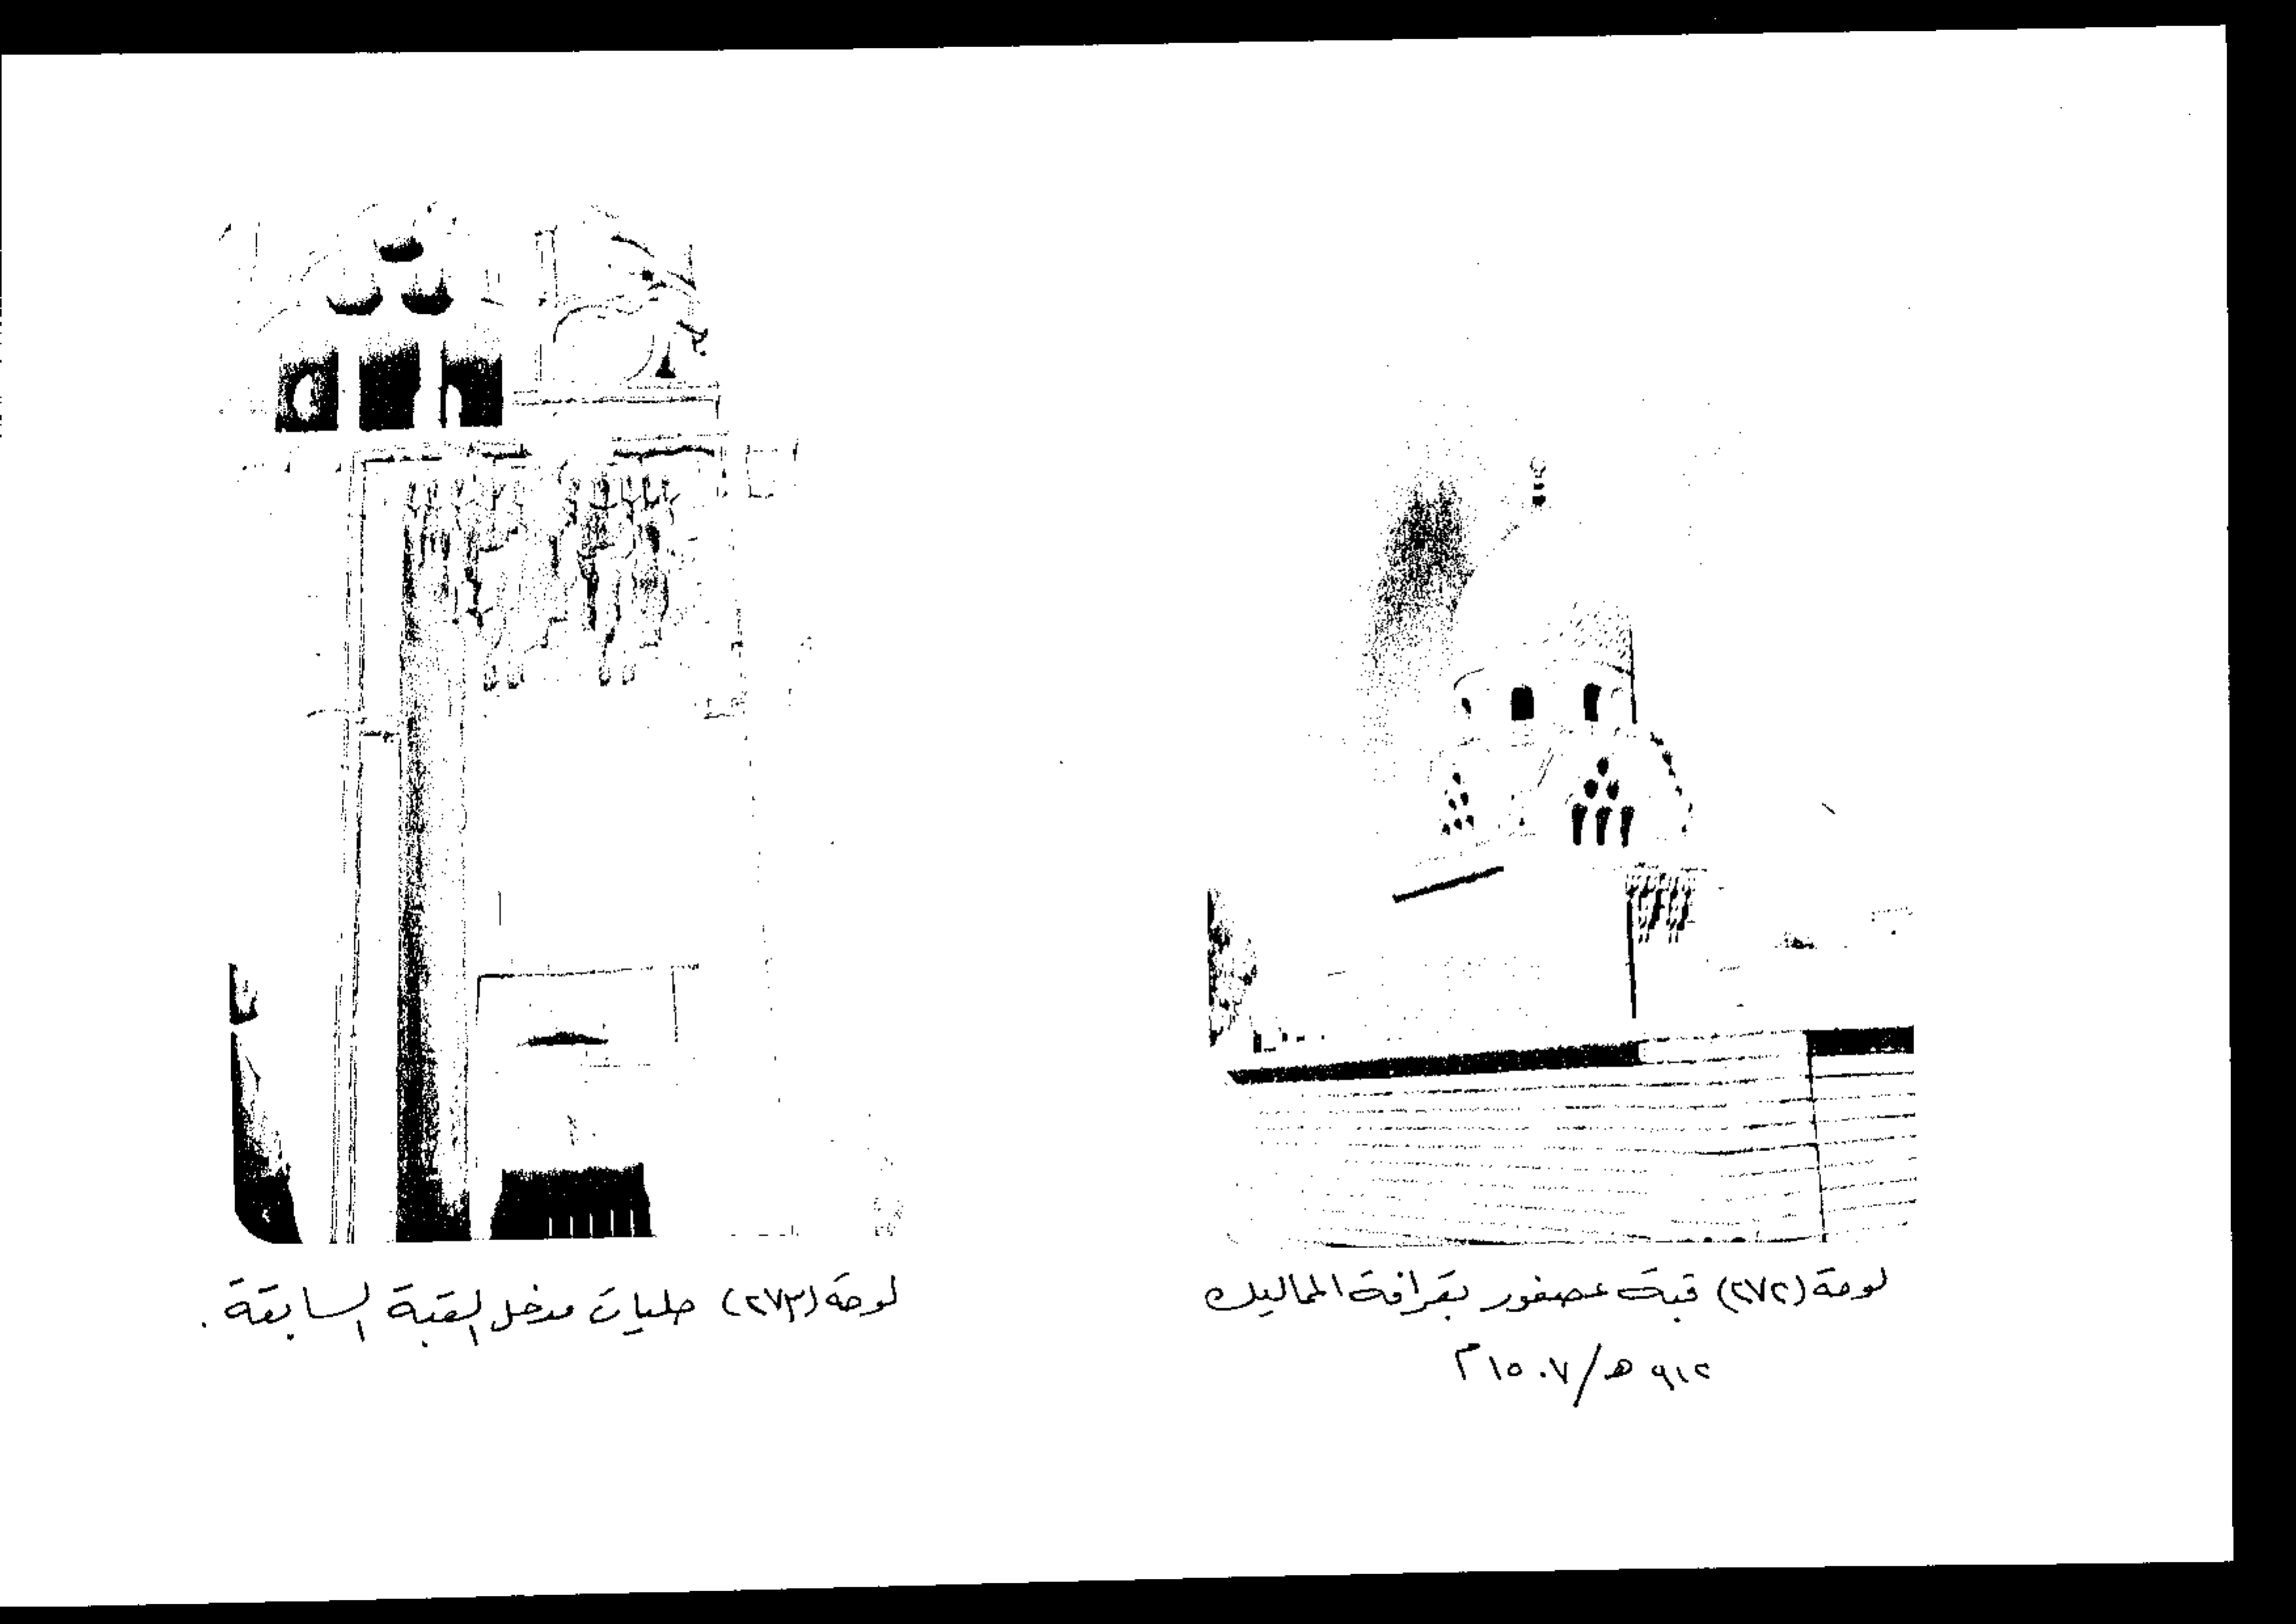 لوحة (٢٧٢) قبة عصفور بقرافة المماليك
٩١٢ هـ/ ١٥٠٧م
لوحة (٢٧٣) حليات مدخل القبة السابقة .